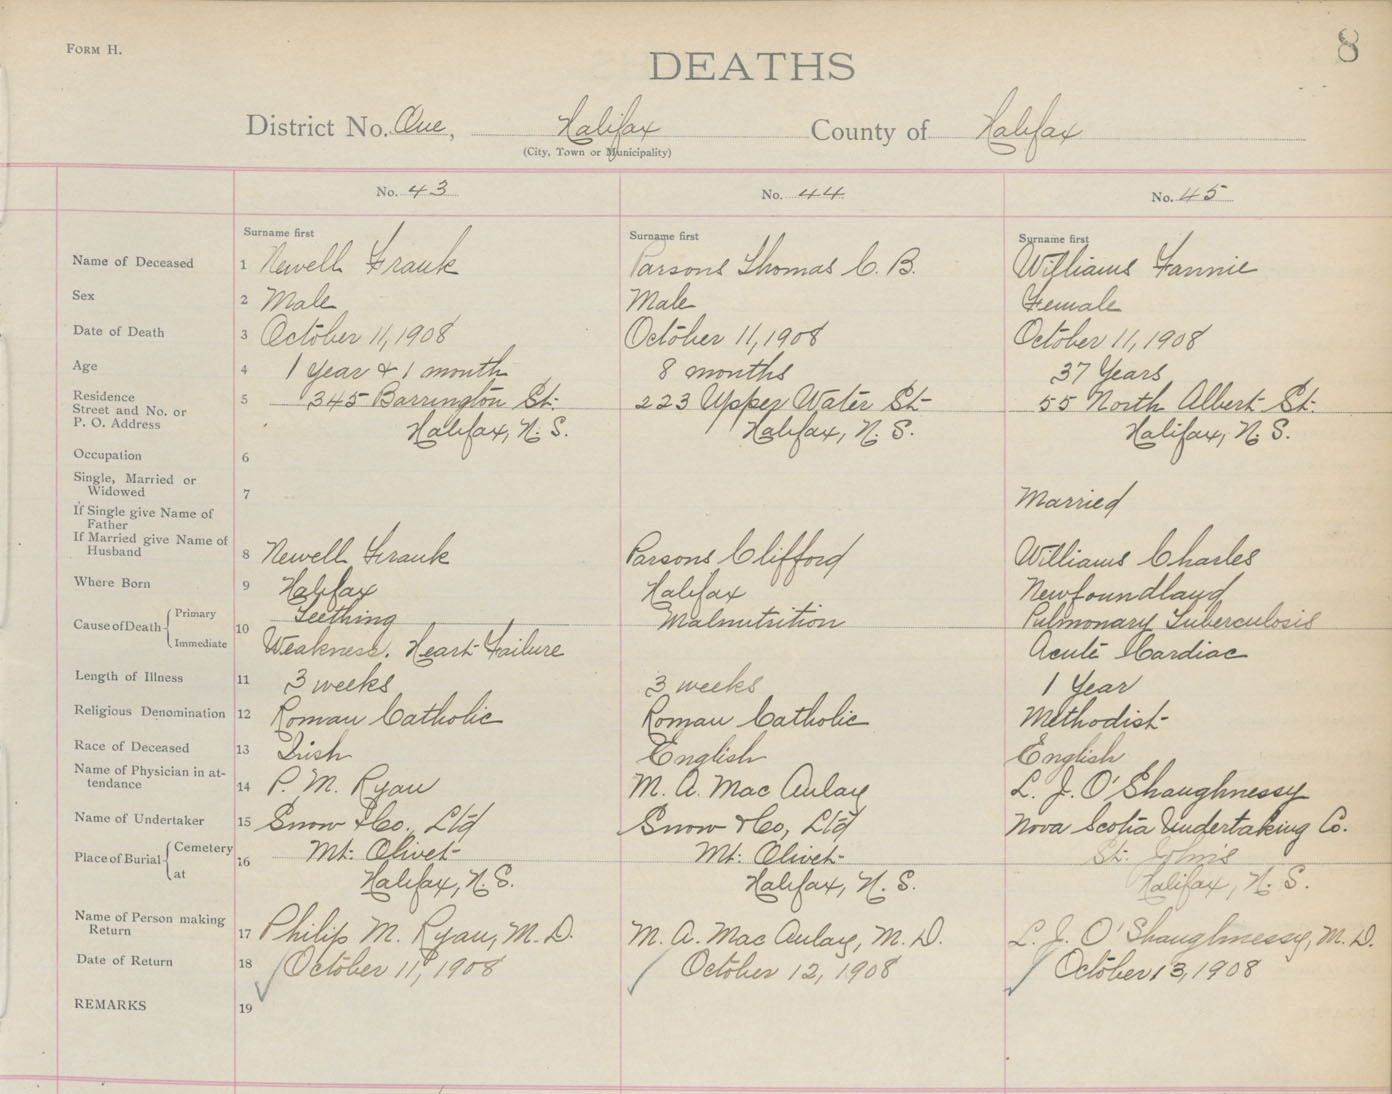 FORM H.
8
DEATHS
District No. One, Halifax County of Halifax
(City, Town or Municipality)
No. 43 No. 44 No. 45
Surname first Surname first Surname first
Name of Deceased 1 Newell Frank Parsons Thomas C. B. Williams Fannie
Sex 2 Male Male Female
Date of Death 3 October 11, 1908 October 11, 1908 October 11, 1908
Age 4 1 Year & 1 month 8 months 37 Years
Residence
Street and No. or 5 345 Barrington St. 223 Upper Water St 55 North Albert St.
P. O. Address Halifax, N. S. Halifax, N. S. Halifax, N. S.
Occupation 6
Single, Married or
Widowed 7 Married
If Single give Name of
Father
If Married give Name of
Husband 8 Newell Frank Parsons Clifford Williams Charles
Where Born 9 Halifax Halifax Newfoundland
Cause of Death Primary 10 Teething Malnutrition Pulmonary Tuberculosis
Immediate Weakness. Heart Failure Acute Cardiac
Length of Illness 11 3 weeks 3 weeks 1 Year
Religious Denomination 12 Roman Catholic Roman Catholic Methodist
Race of Deceased 13 Irish English English
Name of Physician in at-
tendance 14 P. M. Ryan M. A. Mac Aulay L. J. O'Shaughnessy
Name of Undertaker 15 Snow & Co., Ltd Snow & Co, Ltd Nova Scotia Undertaking Co.
Place of Burial Cemetery 16 Mt. Olivet Mt. Olivet St. John's
at Halifax, N. S. Halifax, N. S. Halifax, N. S.
Name of Person making
Return 17 Philip M. Ryan, M. D. M. A. Mac Aulay, M. D. L. J. O'Shaughnessy, M. D.
Date of Return 18 October 11, 1908 October 12, 1908 October 13, 1908
REMARKS 19